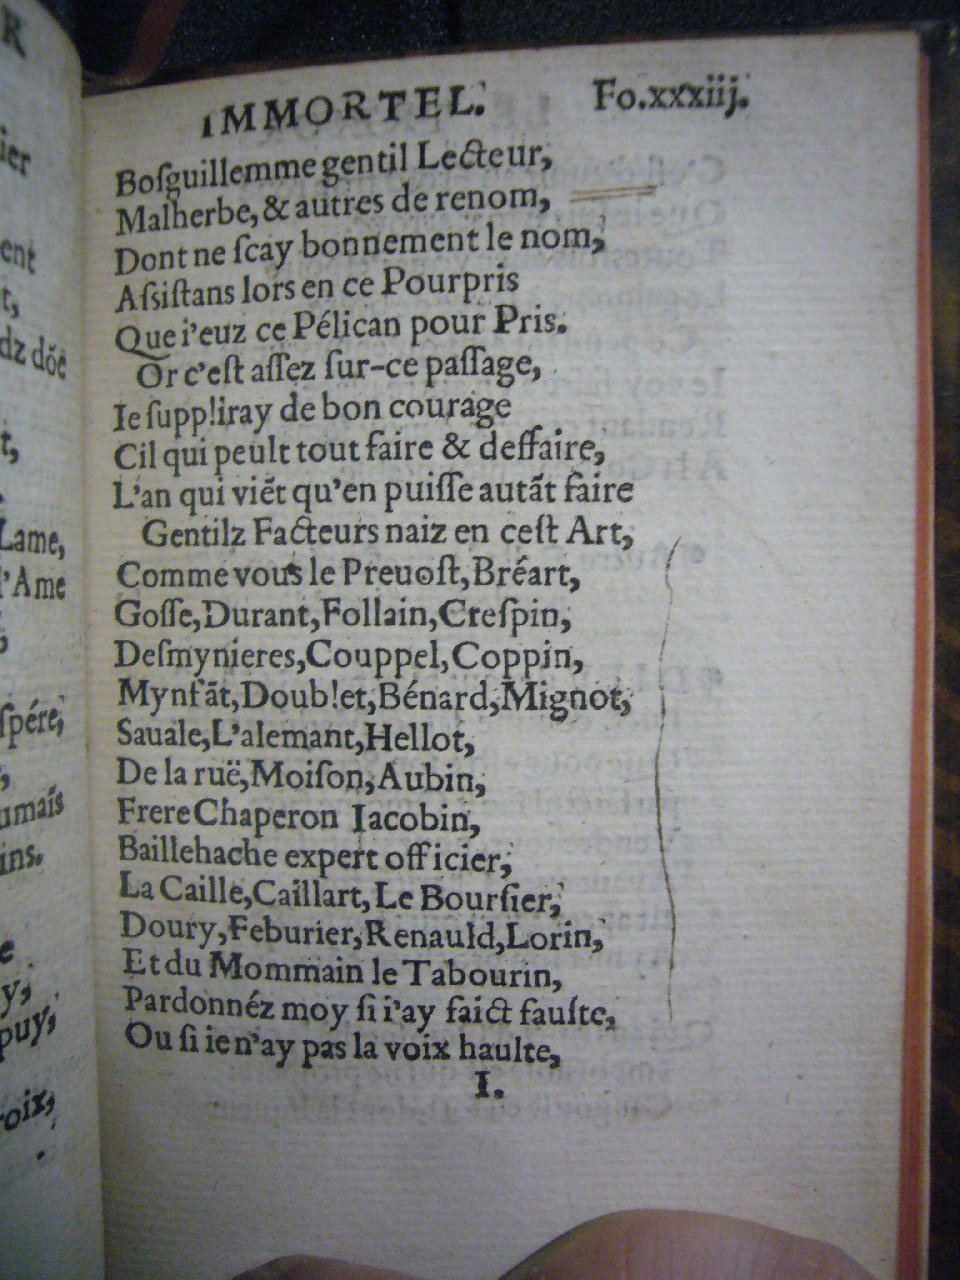 R
ier
ent
t,
dz dõc
t,
Lame,
l'Ame
spére,
umais
ins.
e
y,
puy,
roix,
IMMORTEL. Fo.xxxiij.
Boſguillemme gentil Lecteur,
Malherbe, & autres de renom,
Dont ne ſcay bonnement le nom,
Aſsiſtans lors en ce Pourpris
Que i'euz ce Pélican pour Pris.
Or c'eſt aſſez ſur-ce paſſage,
Ie ſuppliray de bon courage
Cil qui peult tout faire & deſſaire,
L'an qui viẽt qu'en puiſſe autãt faire
Gentilz Facteurs naiz en ceſt Art,
Comme vous le Preuoſt, Bréart,
Goſſe, Durant, Follain, Creſpin,
Deſmynieres, Couppel, Coppin,
Mynfãt, Doublet, Bénard, Mignot,
Sauale, L'alemant, Hellot,
De la ruë, Moiſon, Aubin,
Frere Chaperon Iacobin,
Baillehache expert officier,
La Caille, Caillart, Le Bourſier,
Doury, Feburier, Renauld, Lorin,
Et du Mommain le Tabourin,
Pardonnéz moy ſi i'ay faict faulte,
Ou ſi ie n'ay pas la voix haulte,
I.